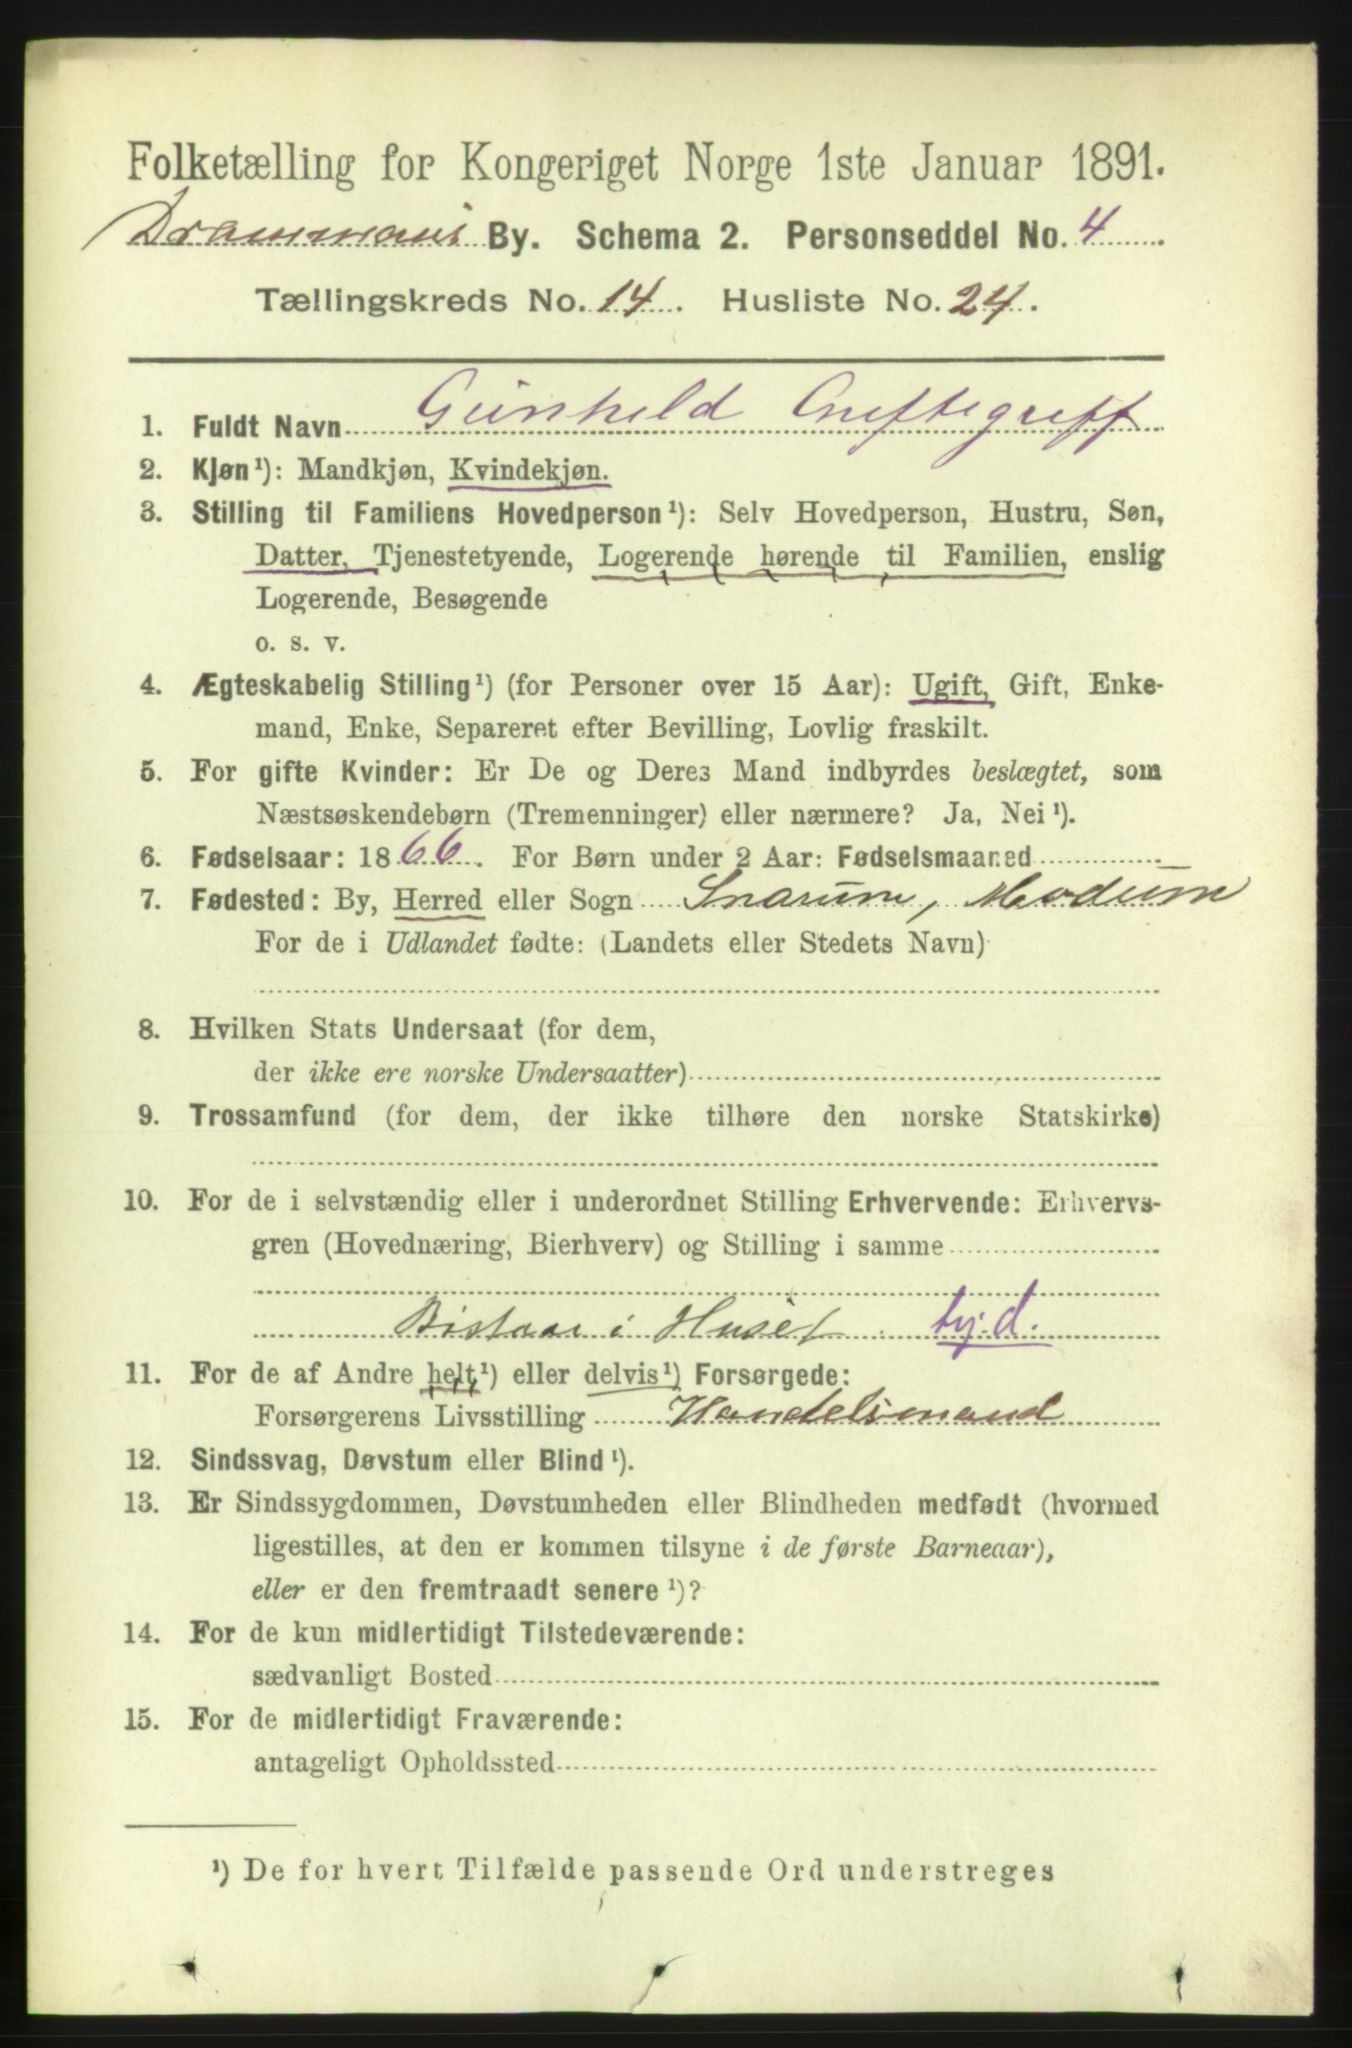 Folketælling for Kongeriget Norge 1ste Januar 1891.
Drammens By. Schema 2. Personseddel No. 4
Tællingskreds No. 14. Husliste No. 24.
1. Fuldt Navn Gunhild Gneftegreff
2. Kjøn¹): Mandkjøn, Kvindekjøn.
3. Stilling til Familiens Hovedperson¹): Selv Hovedperson, Hustru, Søn,
Datter, Tjenestetyende, Logerende hørende til Familien, enslig
Logerende, Besøgende
o. s. v.
4. Ægteskabelig Stilling¹) (for Personer over 15 Aar): Ugift, Gift, Enke-
mand, Enke, Separeret efter Bevilling, Lovlig fraskilt.
5. For gifte Kvinder: Er De og Deres Mand indbyrdes beslægtet, som
Næstsøskendebørn (Tremenninger) eller nærmere? Ja, Nei¹).
6. Fødselsaar: 1866. For Børn under 2 Aar: Fødselsmaaned
7. Fødested: By, Herred eller Sogn Snarum, Modum
For de i Udlandet fødte: (Landets eller Stedets Navn)
8. Hvilken Stats Undersaat (for dem,
der ikke ere norske Undersaatter)
9. Trossamfund (for dem, der ikke tilhøre den norske Statskirke)
10. For de i selvstændig eller i underordnet Stilling Erhvervende: Erhvervs-
gren (Hovednæring, Bierhverv) og Stilling i samme
Bistaar i Huset tyj.d.
11. For de af Andre helt¹) eller delvis¹) Forsørgede:
Forsørgerens Livsstilling Handelsmand
12. Sindssvag, Døvstum eller Blind¹).
13. Er Sindssygdommen, Døvstumheden eller Blindheden medfødt (hvormed
ligestilles, at den er kommen tilsyne i de første Barneaar),
eller er den fremtraadt senere¹)?
14. For de kun midlertidigt Tilstedeværende:
sædvanligt Bosted
15. For de midlertidigt Fraværende:
antageligt Opholdssted
¹) De for hvert Tilfælde passende Ord understreges